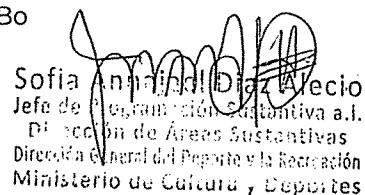 Bo
Sofia Díaz Alecio
Jefe de Sustantiva a.i.
Dirección de Áreas Sustantivas
Dirección General del Deporte y la Recreación
Ministerio de Cultura y Deportes